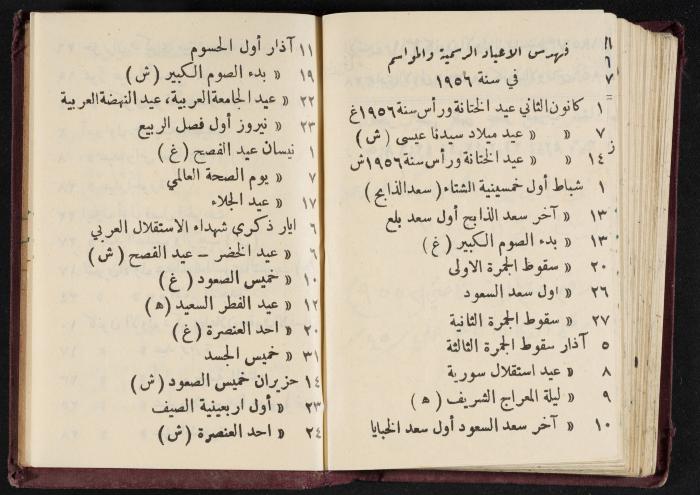 فهرس الاعياد الرسمية والمواسم
في سنة ١٩٥٦
١ كانون الثاني عيد الختانة ورأس سنة ١٩٥٦ غ
٧ « « عيد ميلاد سيدنا عيسى (ش)
١٤ « « عيد الختانة ورأس سنة ١٩٥٦ ش
١ شباط أول خمسينية الشتاء (سعد الذابح)
١٣ « آخر سعد الذابح أول سعد بلع
١٣ « بدء الصوم الكبير (غ)
٢٠ « سقوط الجمرة الاولى
٢٦ « اول سعد السعود
٢٧ « سقوط الجمرة الثانية
٥ آذار سقوط الجمرة الثالثة
٨ « عيد استقلال سورية
٩ « ليلة المعراج الشريف (ه)
١٠ « آخر سعد السعود أول سعد الخبايا
١١ آذار أول الحسوم
١٩ « بدء الصوم الكبير (ش)
٢٢ « عيد الجامعة العربية، عيد النهضة العربية
٢٣ « نيروز أول فصل الربيع
١ نيسان عيد الفصح (غ)
٧ « يوم الصحة العالمي
١٧ « عيد الجلاء
٦ ايار ذكرى شهداء الاستقلال العربي
٦ « عيد الخضر – عيد الفصح (ش)
١٠ « خميس الصعود (غ)
١٢ « عيد الفطر السعيد (ه)
٢٠ « احد العنصرة (غ)
٣١ « خميس الجسد
١٤ حزيران خميس الصعود (ش)
٢٣ « أول اربعينية الصيف
٢٤ « احد العنصرة (ش)